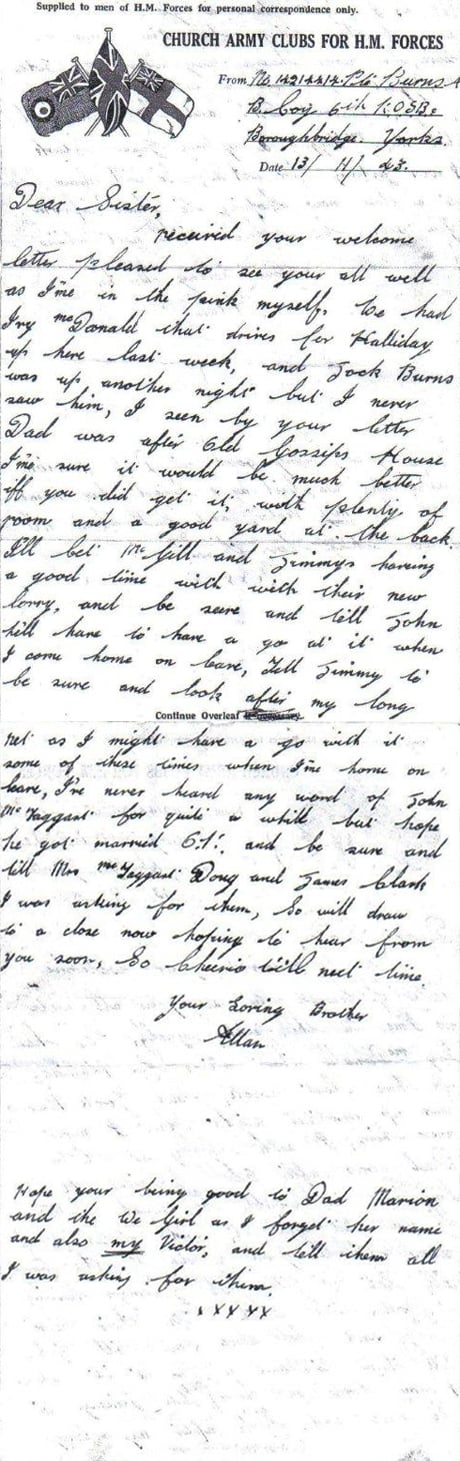 Supplied to men of H.M. Forces for personal correspondence only.
CHURCH ARMY CLUBS FOR H.M. FORCES
From No 14214414. Pte Burns A
B. Coy 6th K.O.S.B.
Boroughbridge. Yorks.
Date 13/ 11/ 43.
Dear Sister,
received your welcome
letter pleased to see your all well
as I'me in the pink myself. We had
Ivy McDonald that drives for Halliday
up here last week, and Jock Burns
was up another night but I never
saw him, I seen by your letter
Dad was after Old Gossips House
I'me sure it would be much better
iff you did get it, with plenty of
room and a good yard at the back.
I'll bet McGill and Jimmys having
a good time with with their new
lorry, and be sure and tell John
I'll have to have a go at it when
I come home on leave, Tell Jimmy to
be sure and look after my long
Continue Overleaf if necessary.
net as I might have a go with it
some of these times when I'me home on
leave, I've never heard any word of John
McTaggart for quite a while but hope
he got married O.K. and be sure and
tell Mrs McTaggart Doug and James Clark
I was asking for them, So will draw
to a close now hoping to hear from
you soon, So Cheerio till next time.
Your Loving Brother
Allan
Hope your being good to Dad Marion
and the We Girl as I forget her name
and also my Victor, and tell them all
I was asking for them.
x x x x x